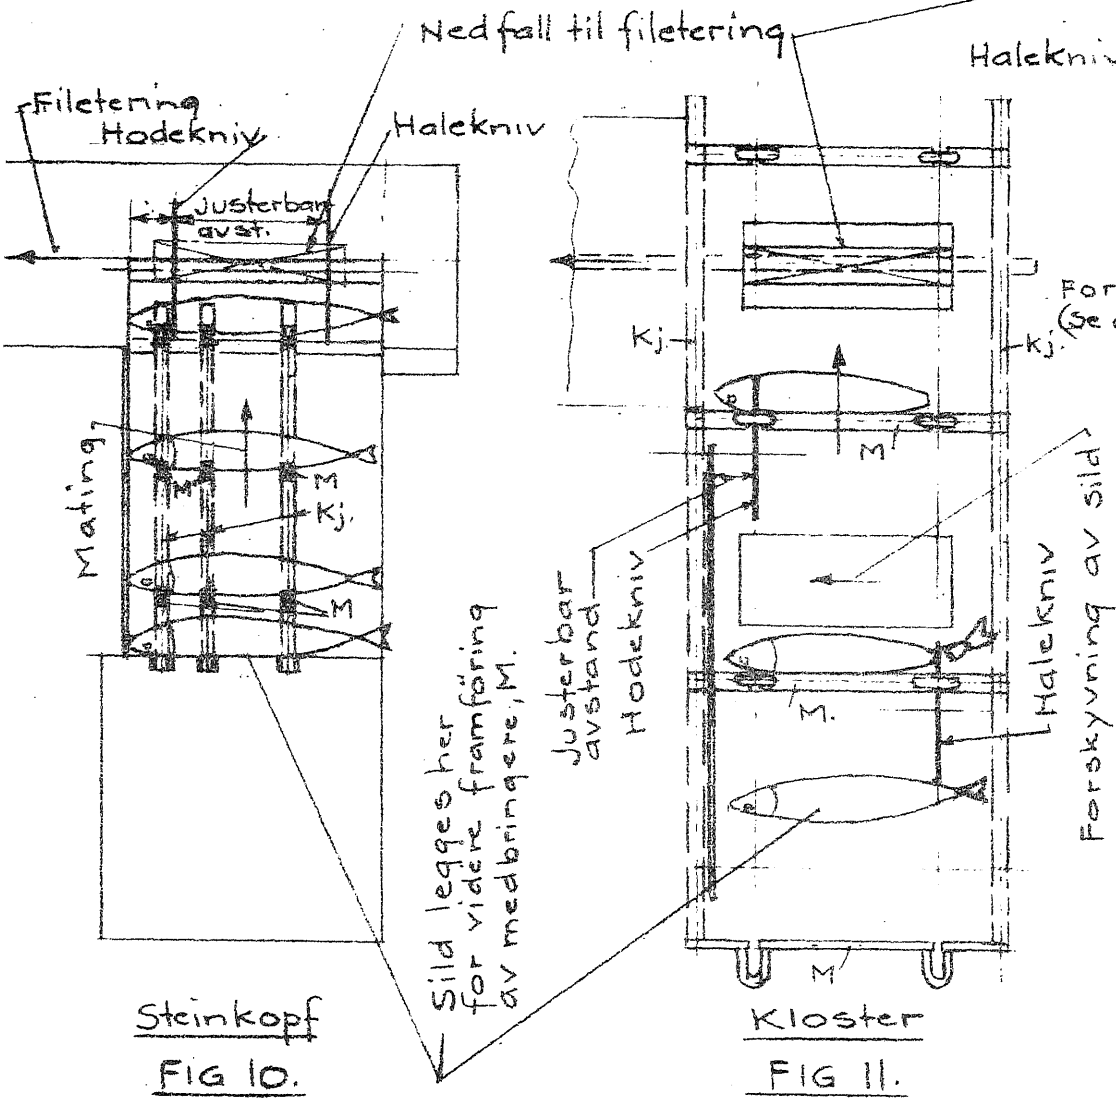 Nedfall til filetering
Halekniv
Filetering
Hodekniv
Halekniv
Justerbar
avst.
Mating
M
M
Kj.
M
Sild legges her
for videre framföring
av medbringere, M.
Steinkopf
FIG 10.
Kj.
Kj.
For
(Se
M
Justerbar
avstand
Hodekniv
M.
Halekniv
Forskyvning av sild
M
Kloster
FIG 11.